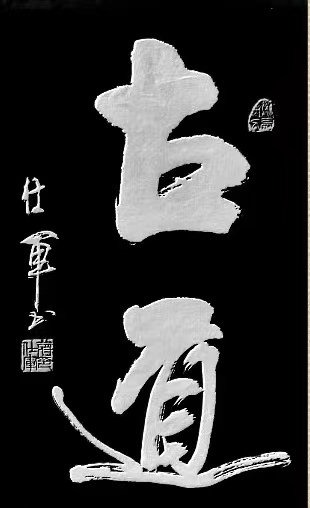 古道
仕軍书